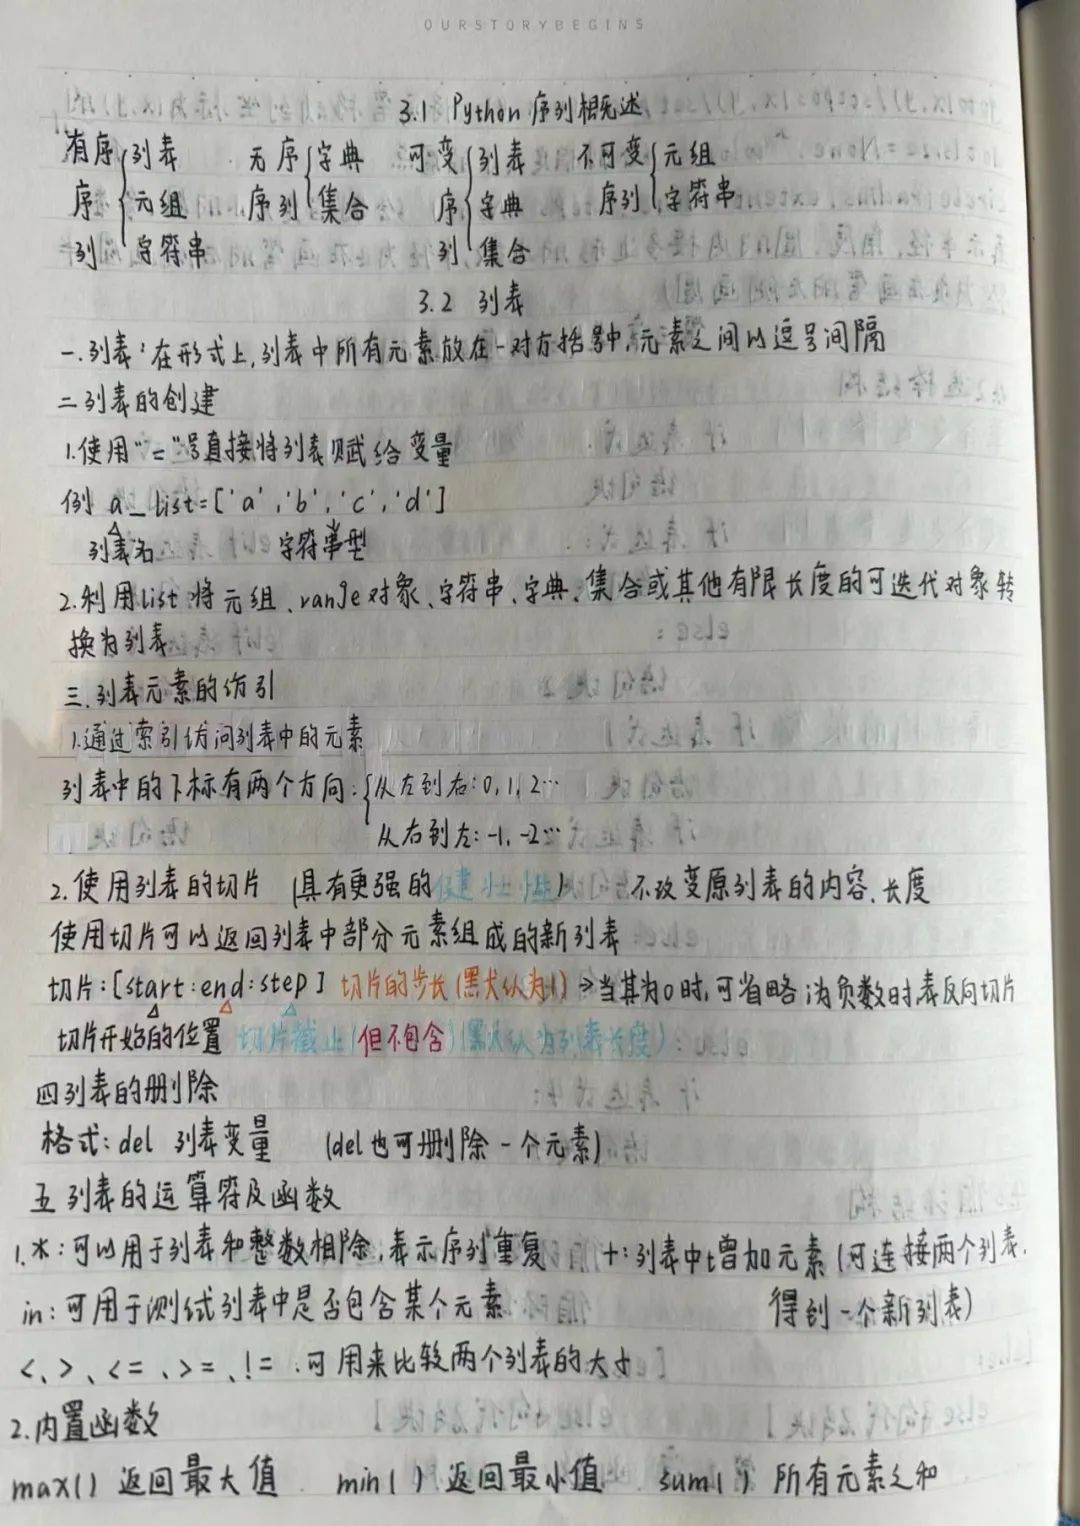 OURSTORYBEGINS
3.1 Python 序列概述
有序序列{列表 元组 字符串 无序序列{字典 集合 可变序列{列表 字典 集合 不可变序列{元组 字符串
3.2 列表
一.列表:在形式上,列表中所有元素放在一对方括号中,元素之间以逗号间隔
二列表的创建
1.使用"="号直接将列表赋给变量
例 a_list=['a','b','c','d']
列表名 字符串型
2.利用list将元组、range对象、字符串、字典、集合或其他有限长度的可迭代对象转
换为列表
三.列表元素的访引
1.通过索引访问列表中的元素
列表中的下标有两个方向:{从左到右:0,1,2…
从右到左:-1,-2…
2.使用列表的切片 (具有更强的健壮性) 不改变原列表的内容.长度
使用切片可以返回列表中部分元素组成的新列表
切片:[start:end:step] 切片的步长(默认为1)→当其为0时,可省略;为负数时,表反向切片
切片开始的位置 切片截止(但不包含)(默认为列表长度)
四列表的删除
格式:del 列表变量 (del也可删除一个元素)
五列表的运算符及函数
1.*:可以用于列表和整数相除,表示序列重复 +:列表中增加元素(可连接两个列表,
得到一个新列表)
in:可用于测试列表中是否包含某个元素
<、>、<=、>=、!=.可用来比较两个列表的大小
2.内置函数
max() 返回最大值 min() 返回最小值 sum() 所有元素之和